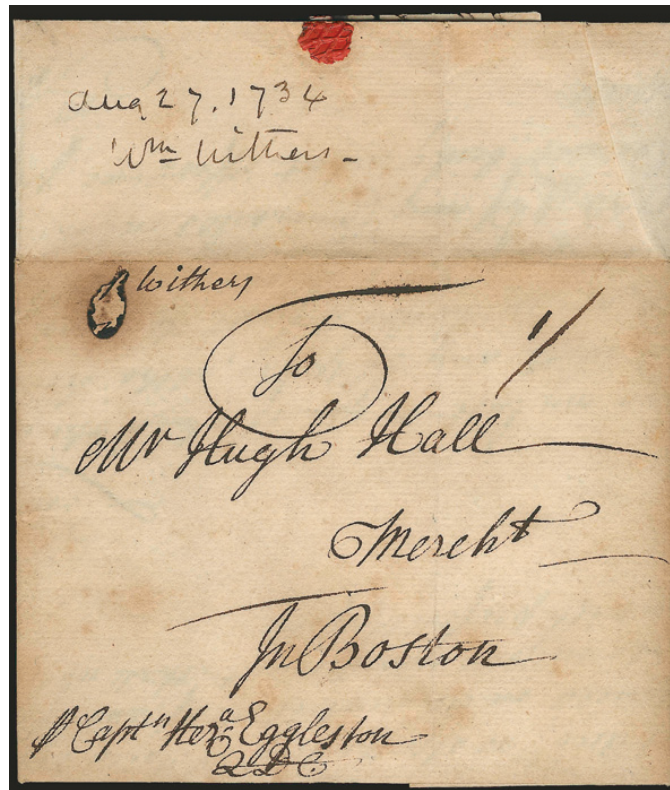 Aug 27. 1734
Wm Withers -
Withers
To
1/
Mr Hugh Hall
Mercht
In Boston
Captn Heza Eggleston
Q D C